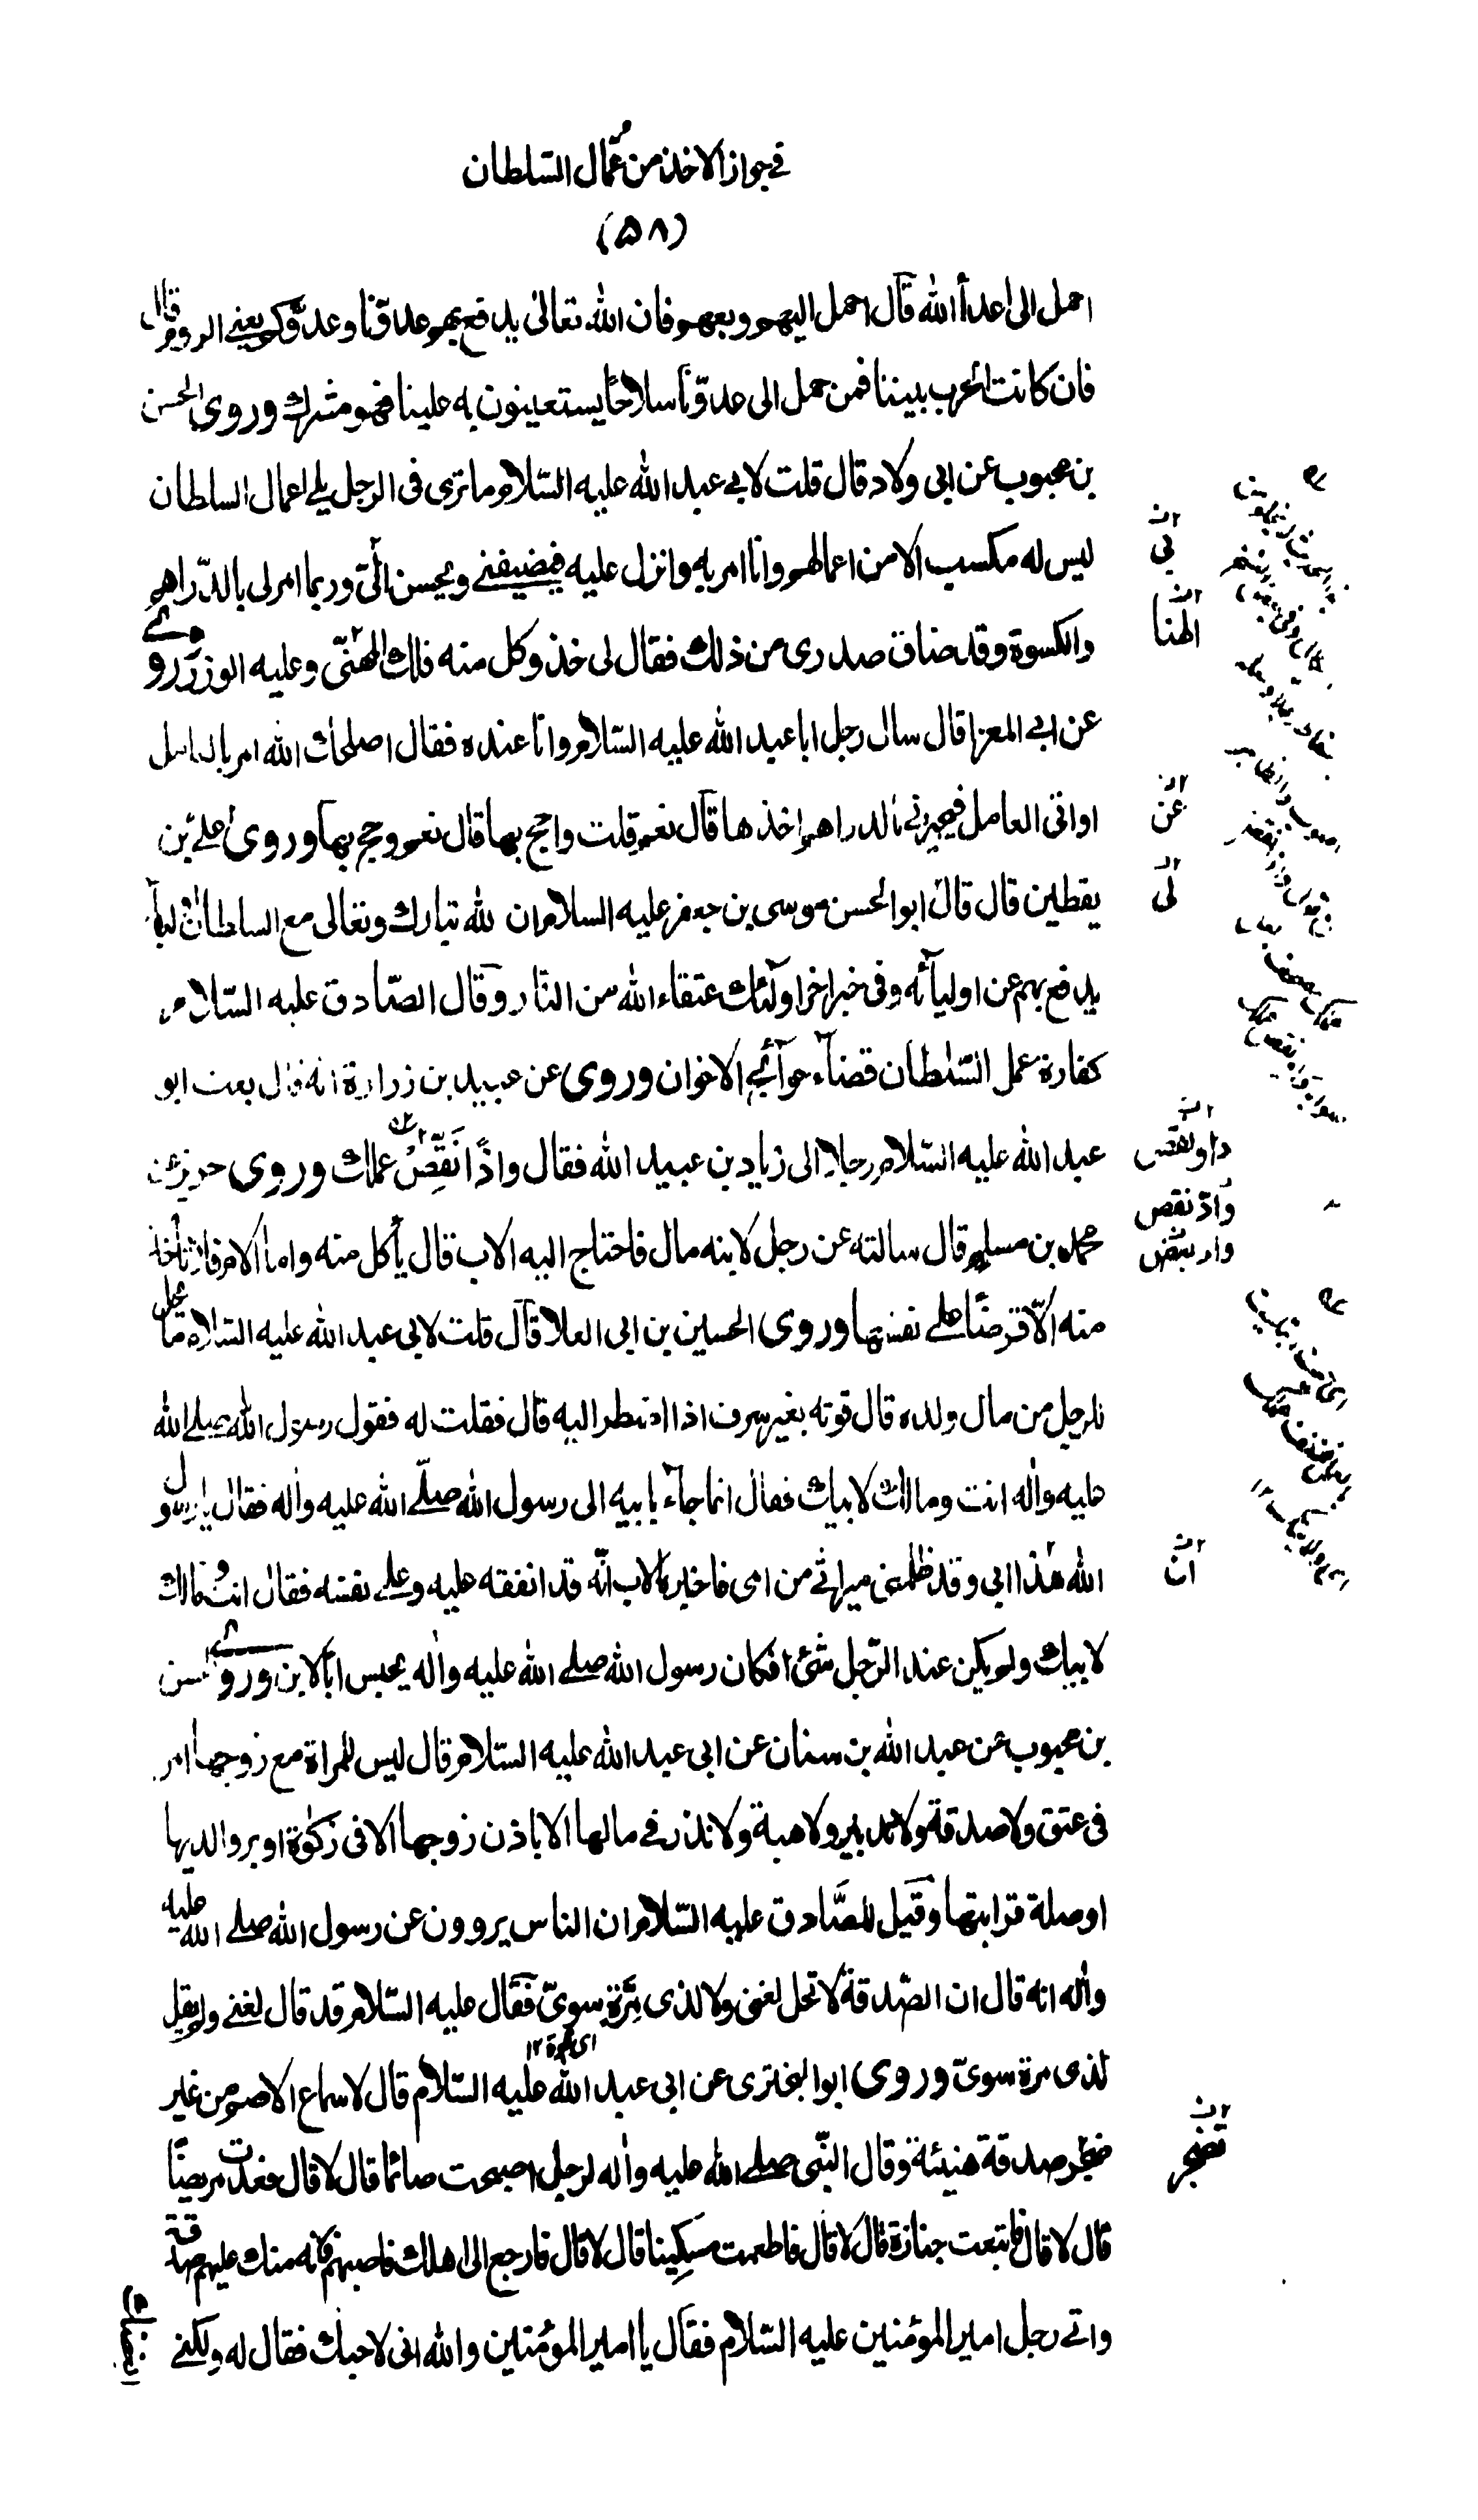 فی جواز الاخذ من عمّال السّلطان
(۵۸)
احمل الی اعدآء الله قال احمل الیهم وبعهم فان الله تعالیٰ یدفع بهم عدوّنا وعدوّکم یعنی الروم قال
فان کانت الحرب بیننا فمن حمل الی عدوّنا سلاحًا یستعینون به علینا فهو مشرك وروی الحسن
بن محبوب عن ابی ولاد قال قلت لابی عبد الله علیه السّلام ما تری فی الرجل یلی اعمال السلطان
لیس له مکسب الا من اعمالهم وانا امر به وانزل علیه فیضیفنی ویحسن الیّ وربما امر لی بالدّراهم
والکسوة وقد ضاق صدری من ذلك فقال لی خذ وکل منه فلك المهنّی وعلیه الوزر وروی
عن ابی المعزا قال سال رجل ابا عبد الله علیه السّلام وانا عنده فقال اصلحك الله امر بالعامل
او اتی العامل فیجیزنی بالدراهم اخذها قال نعم قلت واحج بها قال نعم وحج بها وروی علی بن
یقطین قال قال ابو الحسن موسی بن جعفر علیه السلام ان لله تبارك وتعالی مع السلطان اولیآء
یدفع بهم عن اولیآئه وفی خبر اخر اولئك عتقاء الله من النار وقال الصّادق علیه السّلام
کفارة عمل السّلطان قضآء حوآئج الاخوان وروی عن عبید بن زرارة انه قال بعث ابو
عبد الله علیه السّلام رجلا الی زیاد بن عبید الله فقال واذًا نَقِّصْ عملك وروی حریز عن
محمد بن مسلم قال سالته عن رجل لابنه مال فاحتاج الیه الاب قال یأکل منه واما الام فلا تأخذ
منه الّا قرضًا علی نفسها وروی الحسین بن ابی العلا قال قلت لابی عبد الله علیه السّلام ما یحل
للرجل من مال ولده قال قوته بغیر سرف اذا اضطر الیه قال فقلت له فقول رسول الله صلی الله
علیه وآله انت ومالك لابیك فقال انما جآء بابیه الی رسول الله صلّی الله علیه وآله فقال یا رسول
الله هٰذا ابی وقد ظلمنی میراثی من امی فاخبره الاب انّه قد انفقه علیه وعلی نفسه فقال انت ومالك
لابیك ولم یکن عند الرّجل شئ افکان رسول الله صلی الله علیه وآله یحبس ابًا لابن وروی الحسن
بن محبوب عن عبد الله بن سنان عن ابی عبد الله علیه السّلام قال لیس للمراة مع زوجها امر
فی عتق ولا صدقة ولا تدبیر ولا هبة ولا نذر فی مالها الا باذن زوجها الا فی زکوٰة او بر والدیها
او صلة قرابتها وقیل للصَّادق علیه السّلام ان الناس یروون عن رسول الله صلی الله علیه
وآله انه قال ان الصّدقة لا تحل لغنی ولا لذی مِرَّةٍ سویّ فقال علیه السّلام قد قال لغنی ولم یقل
ای قوة ۱۲
لذی مرة سویّ وروی ابو البختری عن ابی عبد الله علیه السّلام قال لاسماع الاصم من غیر
ضجر صدقة هنیئة وقال النّبی صلی الله علیه وآله لرجل اصبحت صائما قال لا قال فعدت مریضًا
قال لا قال فاتبعت جنازة قال لا قال فاطعمت مسکینا قال لا قال فارجع الی اهلك فاصبهم فانه منك علیهم صدقة
واتی رجل امیر المؤمنین علیه السّلام فقال یا امیر المؤمنین والله انی لاحبك فقال له ولکنی
لی
الهنا
عن
لی
داو نقص
واد نقص
ان
تضجر